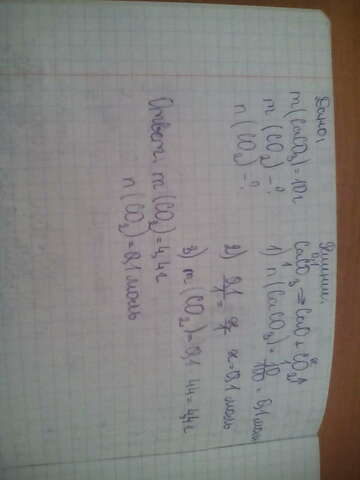 Дано:
m(CaCO₃)=10г
m(CO₂)-?
n(CO₂)-?
Решение:
0,1 x
CaCO₃→CaO+CO₂↑
1 1
1) n(CaCO₃)=10/100=0,1моль
2) 0,1/1=x/1 x=0,1 моль
3) m(CO₂)=0,1·44=4,4г
Ответ: m(CO₂)=4,4г
n(CO₂)=0,1моль